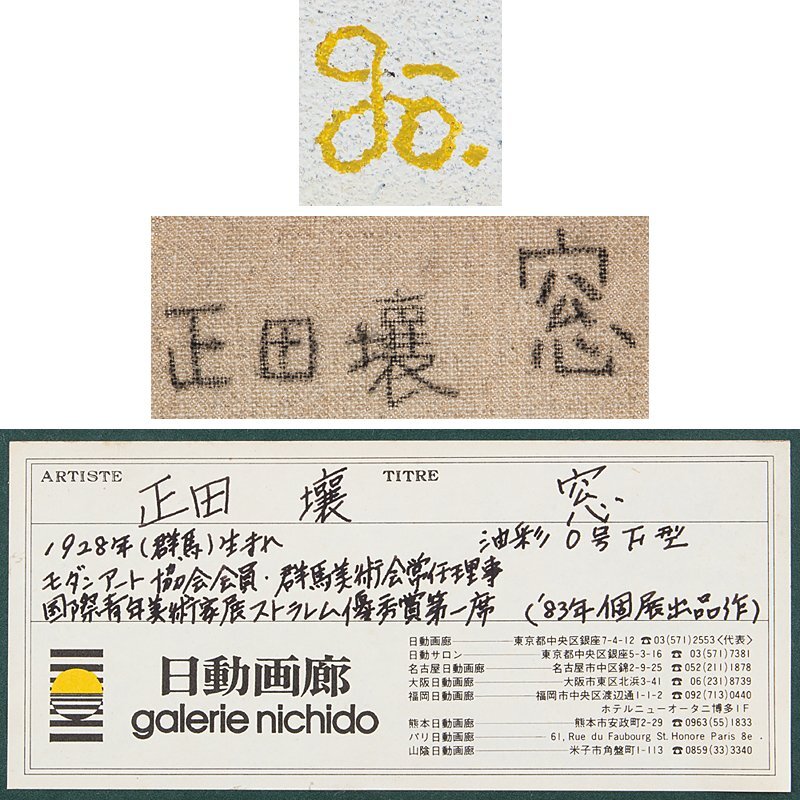 jo.
正田 壤 窓
ARTISTE 正田 壤 TITRE 窓
1928年(群馬)生まれ 油彩 0号F型
モダンアート協会会員・群馬美術会常任理事
国際青年美術家展ストラレム優秀賞第一席 ('83年個展出品作)
日動画廊
galerie nichido
日動画廊 東京都中央区銀座7-4-12 ☎03(571)2553<代表>
日動サロン 東京都中央区銀座5-3-16 ☎03(571)7381
名古屋日動画廊 名古屋市中区錦2-9-25 ☎052(211)1878
大阪日動画廊 大阪市東区北浜3-41 ☎06(231)8739
福岡日動画廊 福岡市中央区渡辺通1-1-2 ☎092(713)0440
ホテルニューオータニ博多1F
熊本日動画廊 熊本市安政町2-29 ☎0963(55)1833
パリ日動画廊 61, Rue du Faubourg St. Honore Paris 8e
山陰日動画廊 米子市角盤町1-113 ☎0859(33)3340